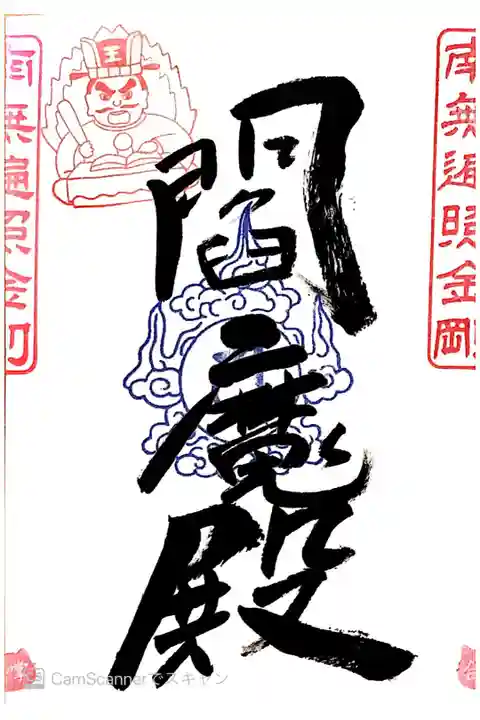 南無遍照金剛
王
閻魔殿
南無遍照金剛
CamScannerでスキャン